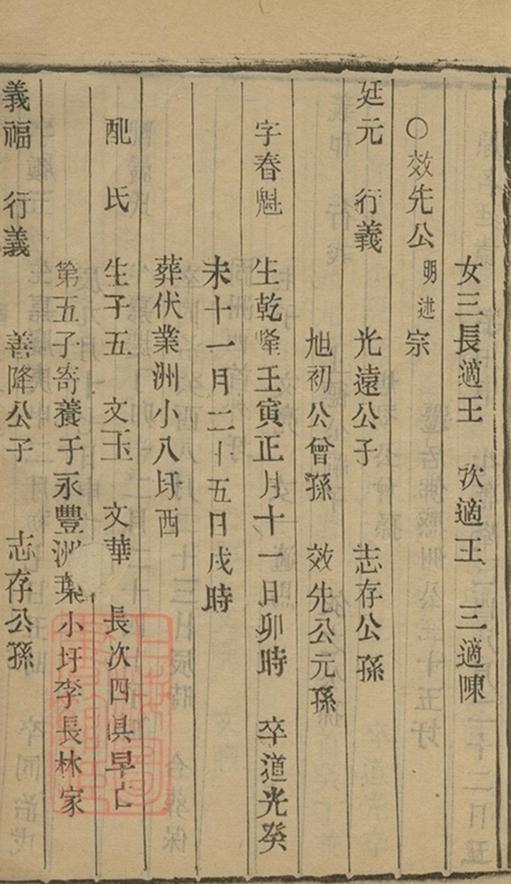 女三長適王 次適王 三適陳
○效先公 明述宗
廷元 行義 光遠公子 志存公孫
旭初公曾孫 效先公元孫
字春魁 生乾隆壬寅正月十一日卯時 卒道光癸
未十一月二十五日戌時
葬伏業洲小八圩西
配氏 生子五 文玉 文華 長次四俱早亡
第五子寄養于永豐洲葉小圩李長林家
義福 行義 善降公子 志存公孫